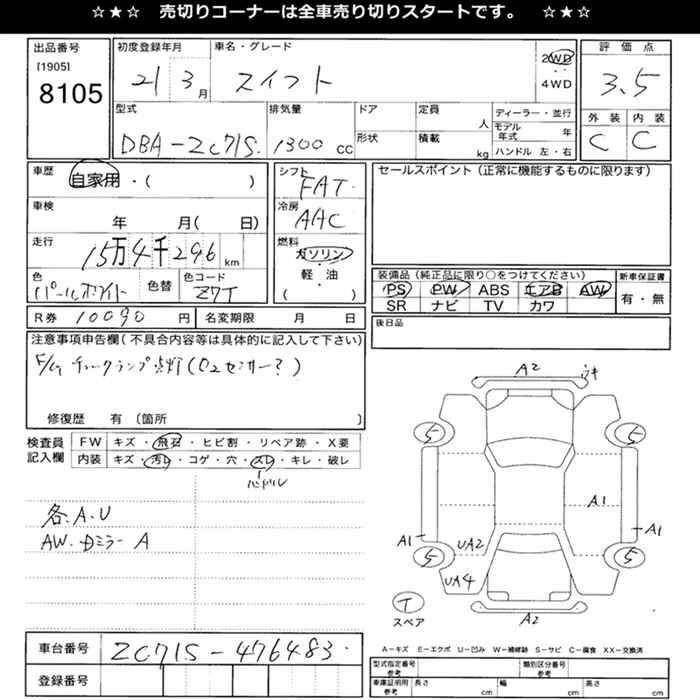 ☆★☆ 売切りコーナーは全車売り切りスタートです。 ☆★☆
出品番号
[1905]
8105
初度登録年月
21 3月
車名・グレード
スイフト
2WD
4WD
評価点
3.5
外装 内装
C C
型式
DBA-ZC71S
排気量
1300 CC
ドア
形状
定員 人
積載 kg
ディーラー・並行
モデル年式 年
ハンドル 左・右
車歴
自家用・( )
シフト
FAT
セールスポイント(正常に機能するものに限ります)
車検
年 月( 日)
冷房
AAC
走行
15万4千296km
燃料
ガソリン
軽・油
( )
色
パールホワイト
色替
色コード
Z7T
装備品(純正品に限り○をつけてください)
PS PW ABS エアB AW
SR ナビ TV カワ
新車保証書
有・無
R券 10090円
名変期限 月 日
後日品
注意事項申告欄(不具合内容等は具体的に記入して下さい)
チェックランプ点灯(O2センサー?)
修復歴 有 〔箇所 〕
検査員記入欄
FW キズ・飛石・ヒビ割・リペア跡・X要
内装 キズ・汚レ・コゲ・穴・スレ・キレ・破レ
ハンドル
各A.U
AW.Dミラー A
A2
ウキ
5 5
A1
A1 UA2 A1
5 5
UA4
T
スペア
A2
A-キズ E-エクボ U-凹み W-補修跡 S-サビ C-腐食 XX-交換済
車台番号
ZC71S-476483
登録番号
型式指定番号 参考
類別区分番号 参考
車庫証明用 参考
長さ cm
幅 cm
高さ cm